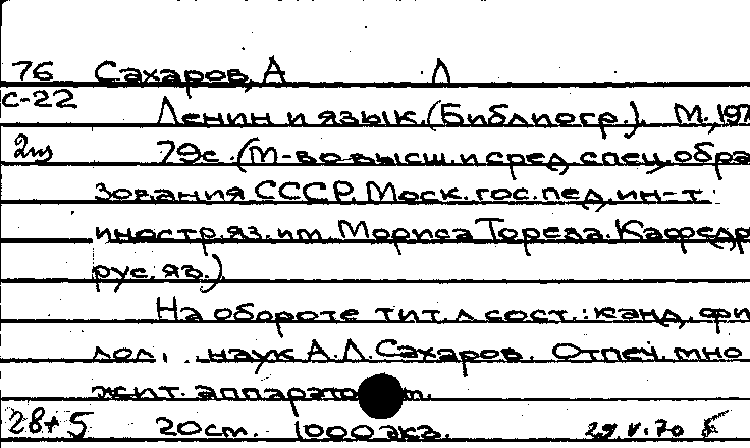 76 Сахаров, А Л
С-22 Ленин и язык. (Библиогр.). М., 197
2ш 79с. (М-во высш. и сред. спец. обра
зования СССР. Моск. гос. пед. ин-т
иностр. яз. им. Мориса Тореза. Кафедр
рус. яз.)
На обороте тит. л. сост.: канд. фи
лол. наук А.Л. Сахаров. Отпеч. мно
жит. аппаратом.
28+5 20см. 1000 экз. 29.V.70